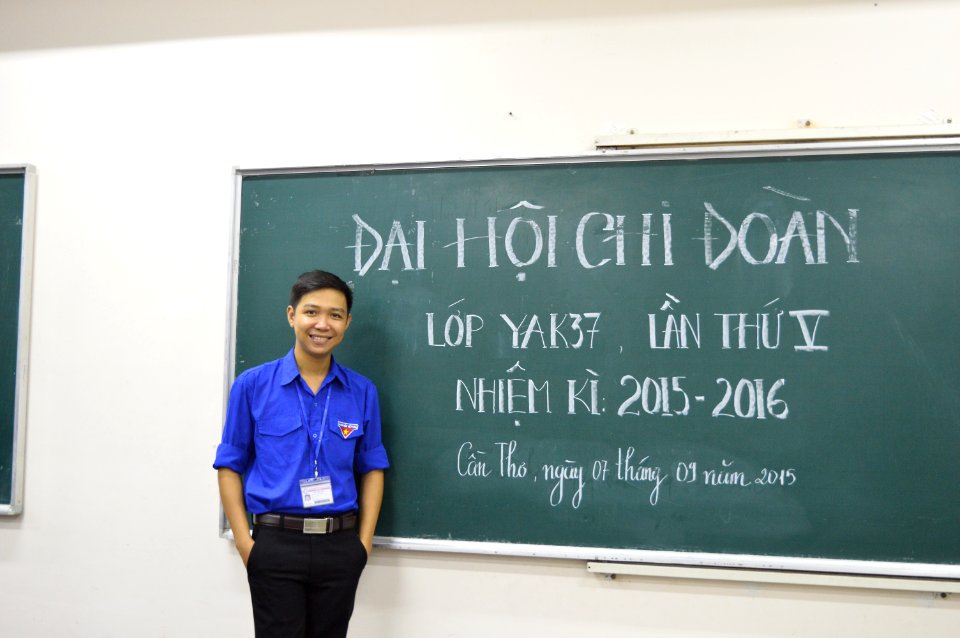 ĐẠI HỘI CHI ĐOÀN
LỚP YAK37, LẦN THỨ V
NHIỆM KÌ: 2015-2016
Cần Thơ, ngày 07 tháng 09 năm 2015